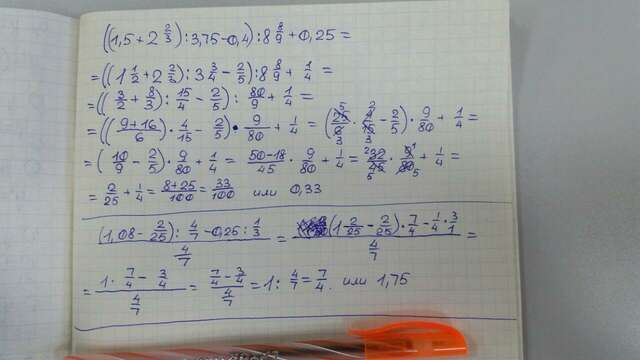 ((1,5 + 2 2/3) : 3,75 - 0,4) : 8 8/9 + 0,25 =
= ((1 1/2 + 2 2/3) : 3 3/4 - 2/5) : 8 8/9 + 1/4 =
= ((3/2 + 8/3) : 15/4 - 2/5) : 80/9 + 1/4 =
= ((9+16)/6) · 4/15 - 2/5) · 9/80 + 1/4 = (25/6 · 4/15 - 2/5) · 9/80 + 1/4 =
= (10/9 - 2/5) · 9/80 + 1/4 = (50-18)/45 · 9/80 + 1/4 = 32/45 · 9/80 + 1/4 =
= 2/25 + 1/4 = (8+25)/100 = 33/100 или 0,33
((1,08 - 2/25) : 4/7 - 0,25 : 1/3)/(4/7) = ((1 2/25 - 2/25) · 7/4 - 1/4 · 3/1)/(4/7) =
= (1 · 7/4 - 3/4)/(4/7) = (7/4 - 3/4)/(4/7) = 1 : 4/7 = 7/4. или 1,75